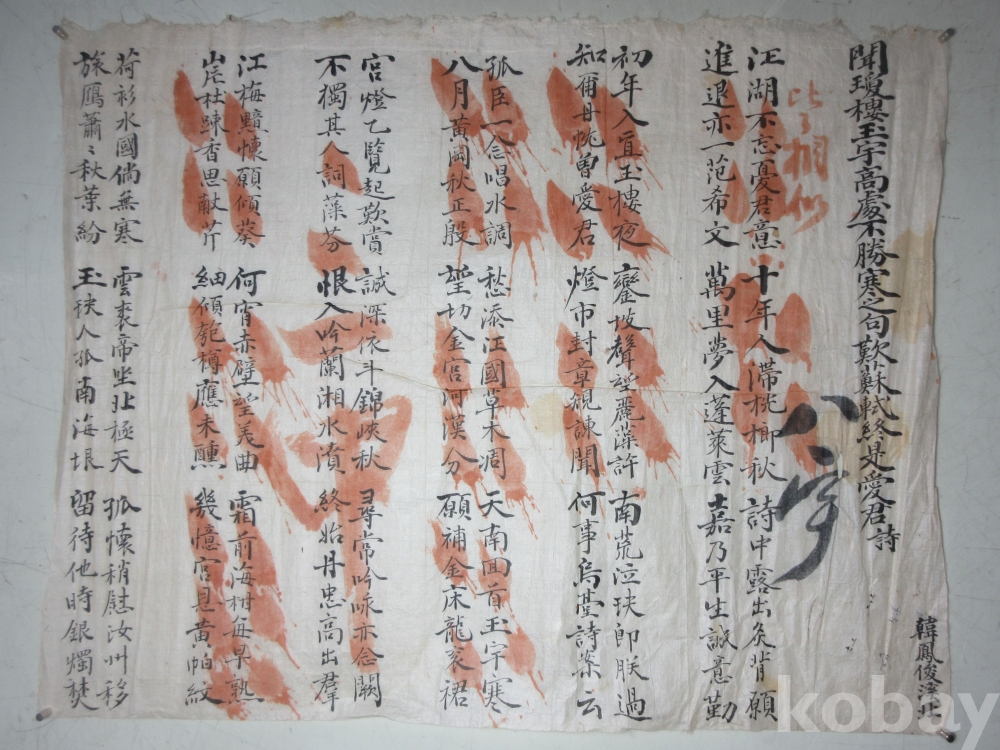 韓鳳俊
聞瓊樓玉宇高處不勝寒之句歎蘇軾終是愛君詩
比〻相似
江湖不忘憂君意
進退亦一范希文
十年人滯桄榔秋
萬里夢入蓬萊雲
詩中露出灸背願
嘉乃平生誠意勤
初年入直玉樓夜
知爾丹忱曾愛君
鑾坡聲麗藻許
燈市封章規諫聞
南荒泣玦卽朕過
何事烏臺詩案云
孤臣一念唱水調
八月黃岡秋正殷
愁添江國草木凋
望切金宮河漢分
天南回首玉宇寒
願補金床龍袞裙
宮燈乙覽起歎賞
不獨其人詞藻芬
誠深依斗錦峽秋
恨入吟蘭湘水濆
尋常吟咏亦念闕
終始丹忠高出羣
江梅黯懷願傾葵
岸杜踈香思献芹
何宵赤壁望美曲
細傾匏樽應未醺
霜前海柑每早熟
幾憶宮恩黃帕紋
荷衫水國倘無寒
旅鴈蕭〻秋葉紛
雲裘帝坐北極天
玉玦人孤南海垠
孤懷稍慰汝州移
留待他時銀燭焚
kobay